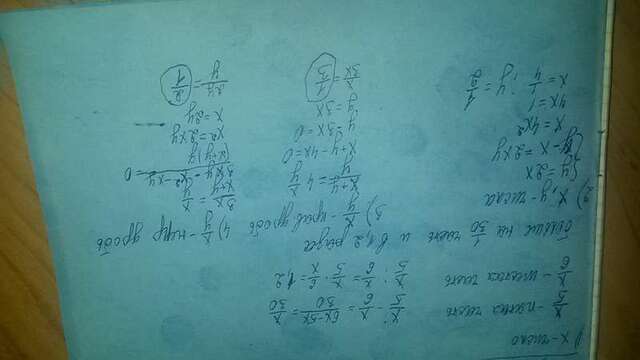 1) x - число
x/5 - пятая часть
x/6 - шестая часть
x/5 - x/6 = (6x-5x)/30 = x/30
x/5 : x/6 = x/5 · 6/x = 1,2
больше на x/30 часть и в 1,2 раза
2) x, y числа
{ y = 2x
y - x = 2xy
x = 4x²
4x = 1
x = 1/4 ; y = 1/2
3) x/y - прав дробь
(x+y)/y = 4 x/y
x+y - 4x = 0
y - 3x = 0
y = 3x
x/3x = 1/3
4) x/y - прав дробь
2x/(x+y) = x/y
x² = 2xy
x = 2y
2y/y = 2/1